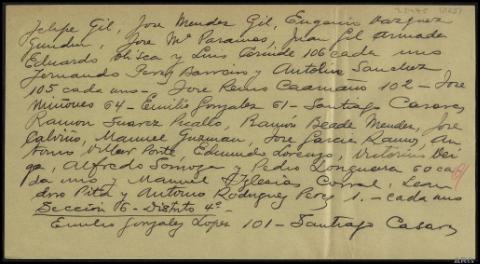 Felipe Gil, Jose Mendez Gil, Eugenio Vazquez
Gundin, Jose Mª Paramés, Juan Gil Armada
Eduardo y Luis Cornide 106 cada uno
Fernando Perez Barreiro y Antolin Sanchez
105 cada uno - Jose Reino Caamaño 102 - Jose
Miñones 64 - Emilio Gonzalez 61 - Santiago Casares
Ramon Suarez Picallo, Ramón Beade Mendez, Jose
Calviño, Manuel Guzman, Jose Garcia Ramos, An-
tonio Villar Ponte, Edmundo Lorenzo, Victorino Vei-
ga, Alfredo Somoza, Pedro Longueira 60 ca
da uno y Manuel Iglesias Corral, Lean
dro Pita y Antonio Rodriguez Perez 1. - cada uno
Sección 6 - Distrito 4º -
Emilio Gonzalez Lopez 101 - Santiago Casares